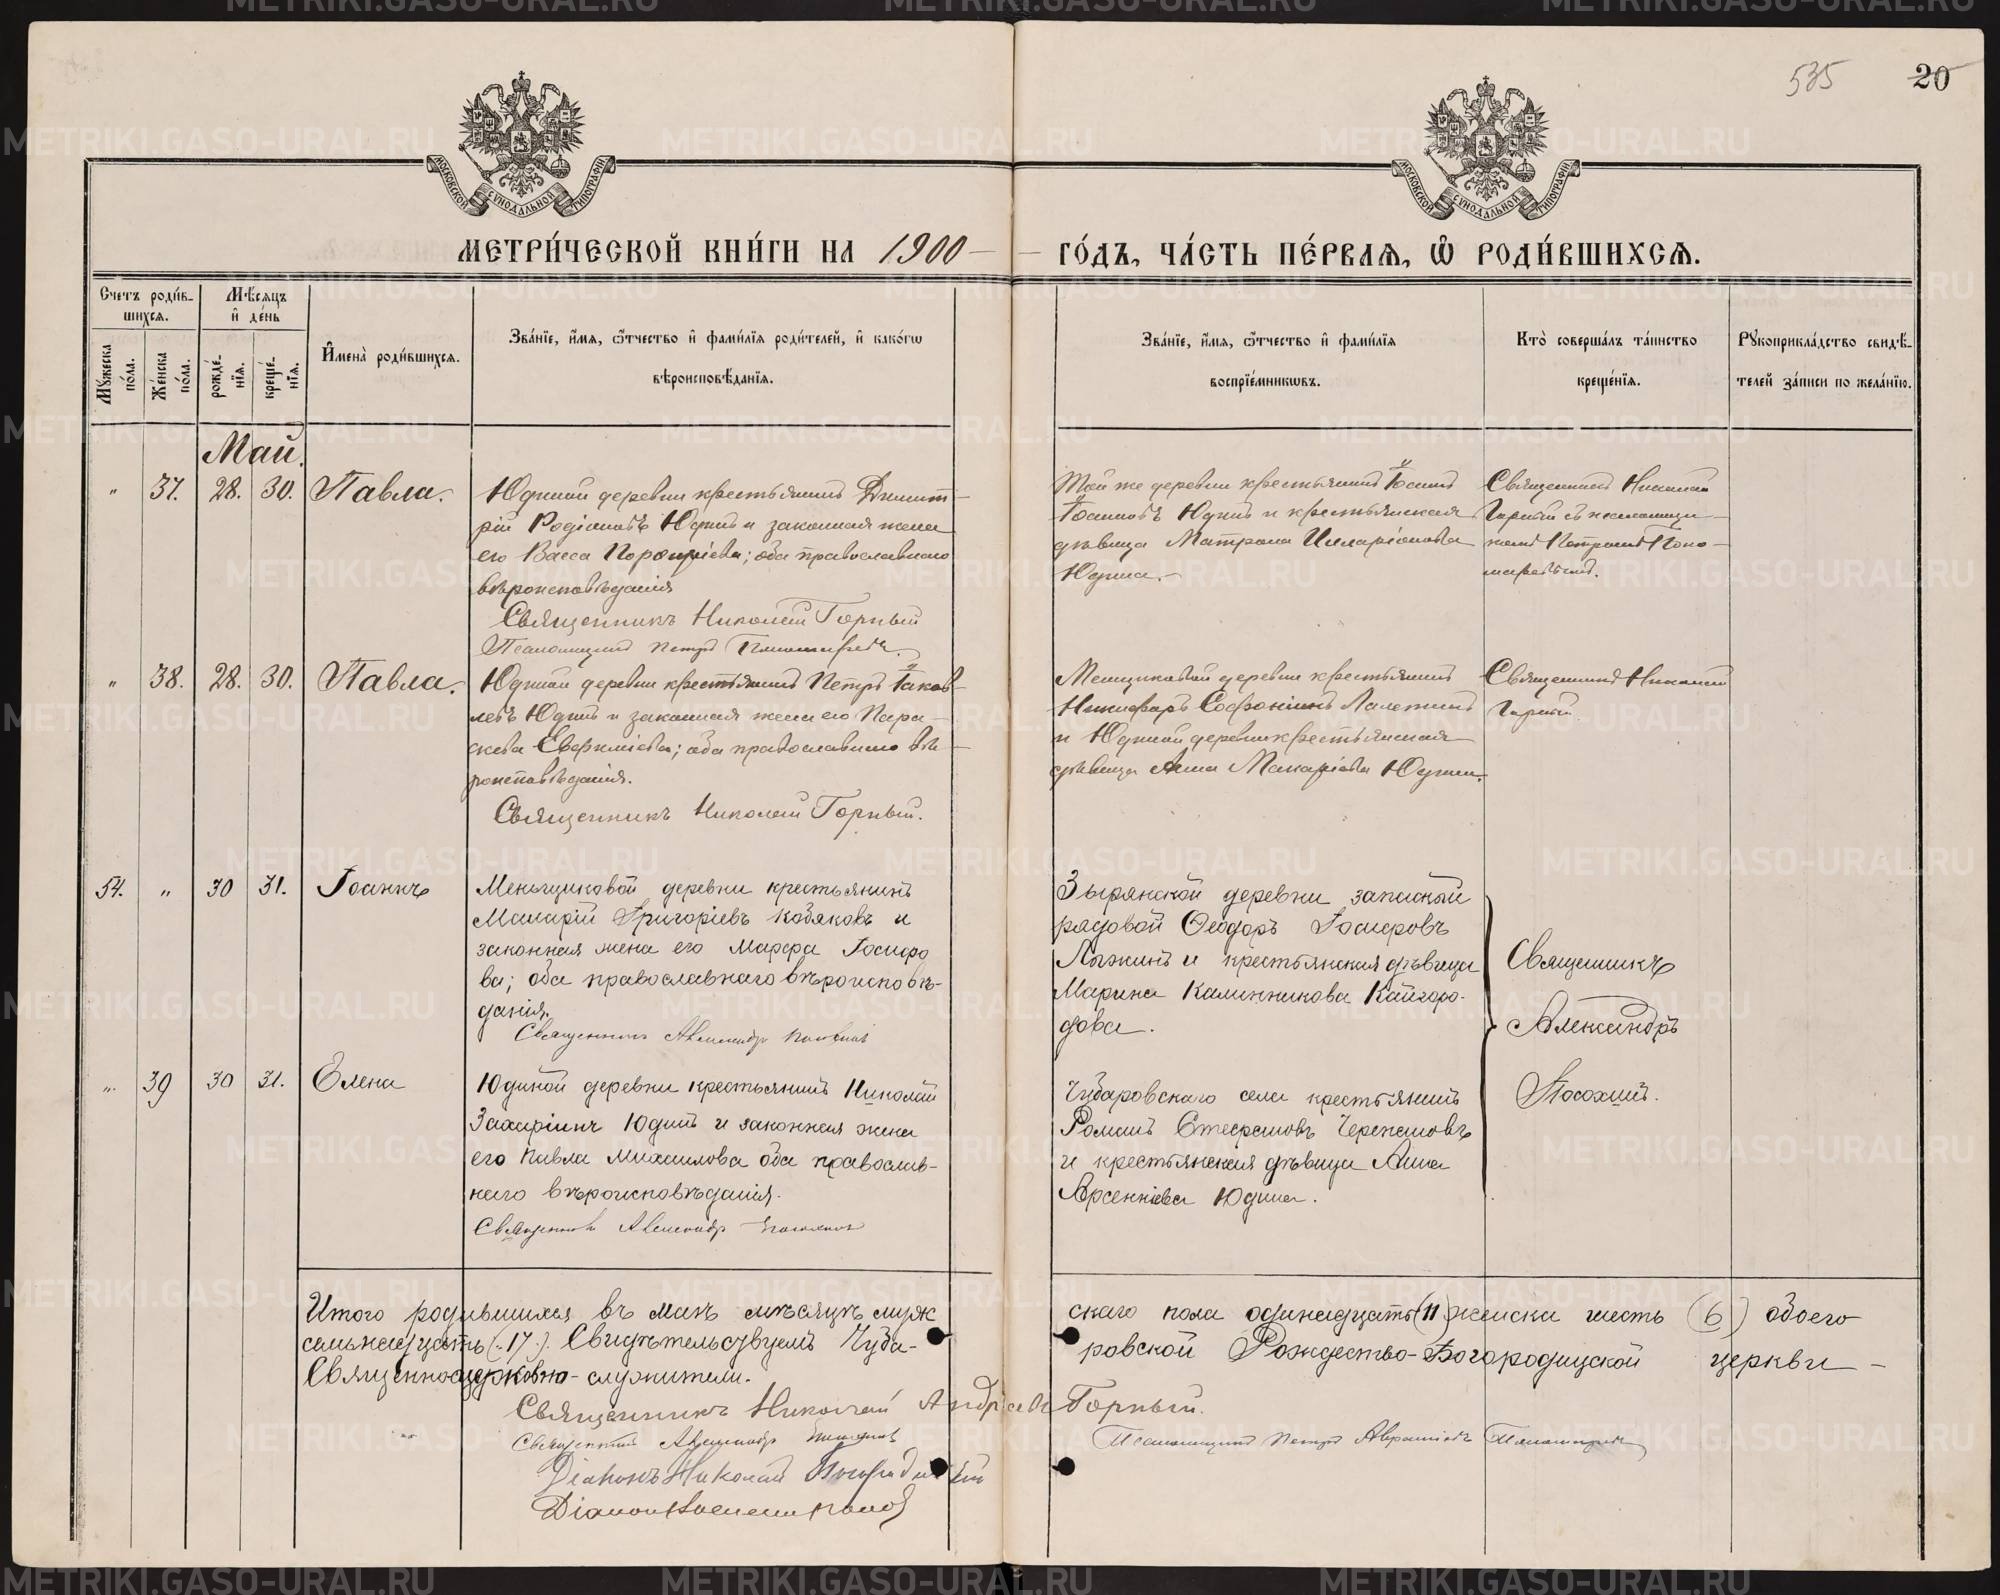 535 20
МОСКОВСКОЙ СѴНОДАЛЬНОЙ ТИПОГРАФІИ
МОСКОВСКОЙ СѴНОДАЛЬНОЙ ТИПОГРАФІИ
МЕТРИ́ЧЕСКОЙ КНИ́ГИ НА 1900 ГО́ДЪ, ЧА́СТЬ ПЕ́РВАѦ, Ѽ РОДИ́ВШИХСѦ.
Счетъ роди́в-
шихся.
Мужеска по́ла.
Же́нска по́ла.
Мѣсяцъ и҆ де́нь
рожде́нїя.
креще́нїя.
И҆мена̀ роди́вшихся.
Зва́нїе, и҆́мя, ѻ҆́тчество и҆ фами́лїя роди́телей, и҆ како́гѡ
вѣроисповѣ́данїя.
Зва́нїе, и҆́мя, ѻ҆́тчество и҆ фами́лїя
воспрїе́мникѡвъ.
Кто̀ соверша́лъ та́инство
креще́нїя.
Рукоприкла́дство свидѣ́-
телей за́писи по жела́нїю.
Май.
" 37. 28. 30. Павла.
Юдиной деревни крестьянинъ Димит-
рій Родіоновъ Юдинъ и законная жена
его Васса Порфирієва; оба православнаго
вѣроисповѣданія
Священникъ Николай Горный
Псаломщикъ Петръ Пономаревъ.
Той же деревни крестьянинъ Іоаннъ
Іоанновъ Юдинъ и крестьянская
дѣвица Матрона Иларіонова
Юдина.
Священникъ Николай
Горный съ псаломщи-
комъ Петромъ Поно-
маревымъ.
" 38. 28. 30. Павла.
Юдиной деревни крестьянинъ Петръ Іаков-
левъ Юдинъ и законная жена его Пара-
скева Евфиміева; оба православнаго вѣ-
роисповѣданія.
Священникъ Николай Горный.
Менщиковой деревни крестьянинъ
Никифоръ Софонiинъ Лалетинъ
и Юдиной деревни крестьянская
дѣвица Анна Макаріева Юдина.
Священникъ Николай
Горный
54. " 30 31. Іоаннъ
Меньщиковой деревни крестьянинъ
Макарій Григоріевъ Кобяковъ и
законная жена его Марфа Іосифо
ва; оба православнаго вѣроисповѣ-
данія.
Священникъ Александръ
Зырянской деревни запасный
рядовой Ѳеодоръ Іосифовъ
Лыжинъ и крестьянская дѣвица
Марина Калинникова Кайгоро-
дова.
Священникъ
Александръ
" 39 30 31. Елена
Юдиной деревни крестьянинъ Николай
Захаріинъ Юдинъ и законная жена
его Павла Михаилова оба православ-
наго вѣроисповѣданія.
Священникъ Александръ
Чубаровскаго села крестьянинъ
Романъ Стефановъ Черепановъ
и крестьянская дѣвица Анна
Арсеніева Юдина.
Итого родившихся въ маѣ мѣсяцѣ муже скаго пола одинадцать (11) женска шесть (6) обоего
семьнадцать (17). Свидѣтельствуемъ Чуба- ровской Рождество-Богородицкой церкви -
Священноцерковно-служители.
Священникъ Николай Андреевъ Горный.
Священникъ Александръ
Псаломщикъ Петръ Авраміевъ Пономаревъ
Діаконъ Николай
Діаконъ Василій Поповъ
METRIKI.GASO-URAL.RU